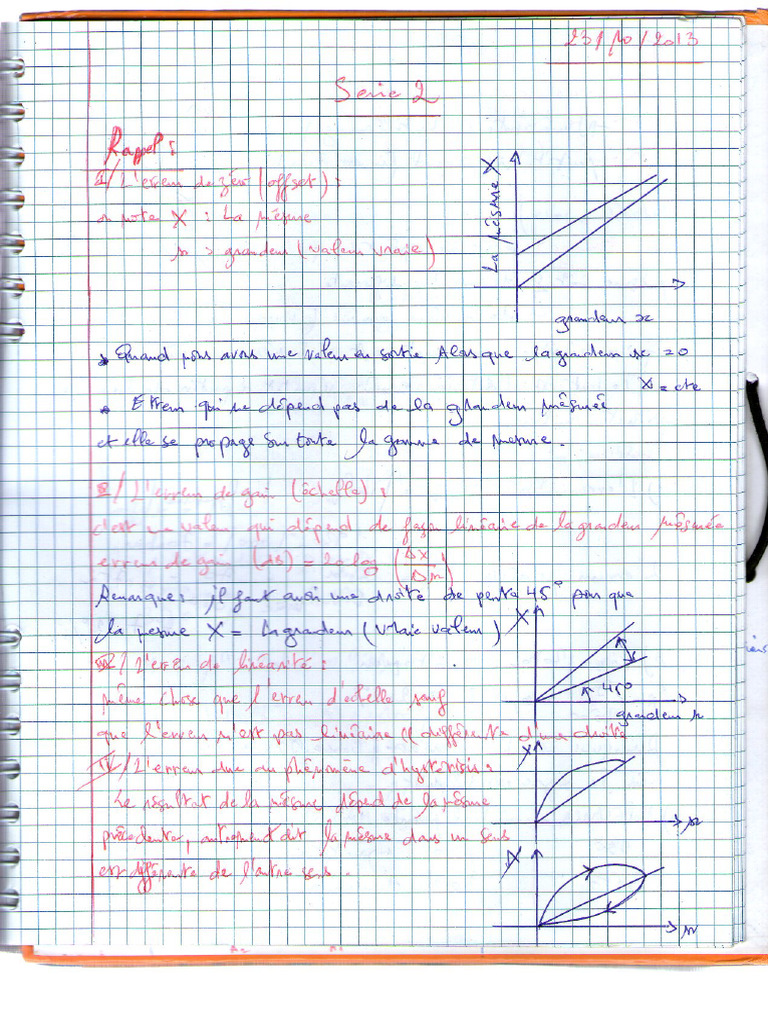 23/10/2013
Serie 2
Rappel :
I/ L'erreur de zéro (offset) :
on note X : La mésure
x > grandeur (valeur vraie)
La mésure X
grandeur x
* Quand nous avons une valeur en sortie Alors que la grandeur x = 0
X = cte
* Erreur qui ne dépend pas de la grandeur mésurée
et elle se propage sur toute la gamme de mesure.
II/ L'erreur de gain (échelle) :
c'est un valeur qui dépend de façon linéaire de la grandeur mésurée
erreur de gain (dB) = 20 log (ΔX/Δx)
Remarque : il faut avoir une droite de pente 45° pour que
la mesure X = La grandeur (vraie valeur)
X
45°
grandeur x
III/ L'erreur de linéarité :
même chose que l'erreur d'échelle sauf
que l'erreur n'est pas linéaire (( différente d'une droite
X
x
IV/ L'erreur due au phénomène d'hysterisis :
Le résultat de la mésure déped de la mésure
précedente, autrement dit la mésure dans un sens
est différente de l'autre sens.
X
x